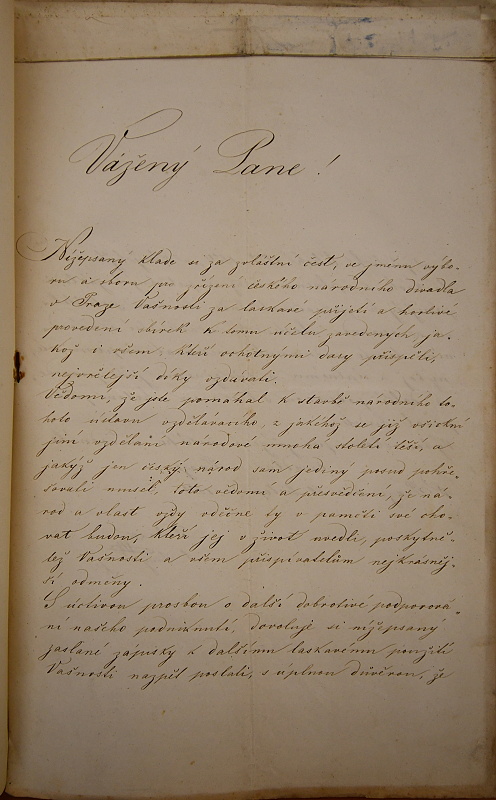 Vážený Pane!
Nížepsaný klade si za zvláštní čest, ve jménu výbo-
ru a sboru pro zřízení českého národního divadla
v Praze Vašnosti za laskavé přijetí a horlivé
povedení sbírek k tomu účelu zavedených ja-
kož i všem, kteří ochotnými dary přispěli,
nejvřelejší díky vzdávati.
Vědomí, že jste pomáhal k stavbě národního to-
hoto ústavu vzdělávacího, z jakéhož se již všickni
jiní vzdělaní národové mnoha století těší, a
jakýž jen český národ sám jediný posud pohře-
šovati musel, toto vědomí a přesvědčení, že ná-
rod a vlast vždy vděčně ty v paměti své cho-
vat budou, kteří jej v život uvedli, poskytně-
tež Vašnosti a všem přispívatelům nejkrásněj-
ší odměny.
S úctivou prosbou o další dobrotivé podporová-
ní našeho podniknutí, dovoluje si nížepsaný
zaslané zápisky k dalšímu laskavému použití
Vašnosti nazpět poslati, s úplnou důvěrou, že